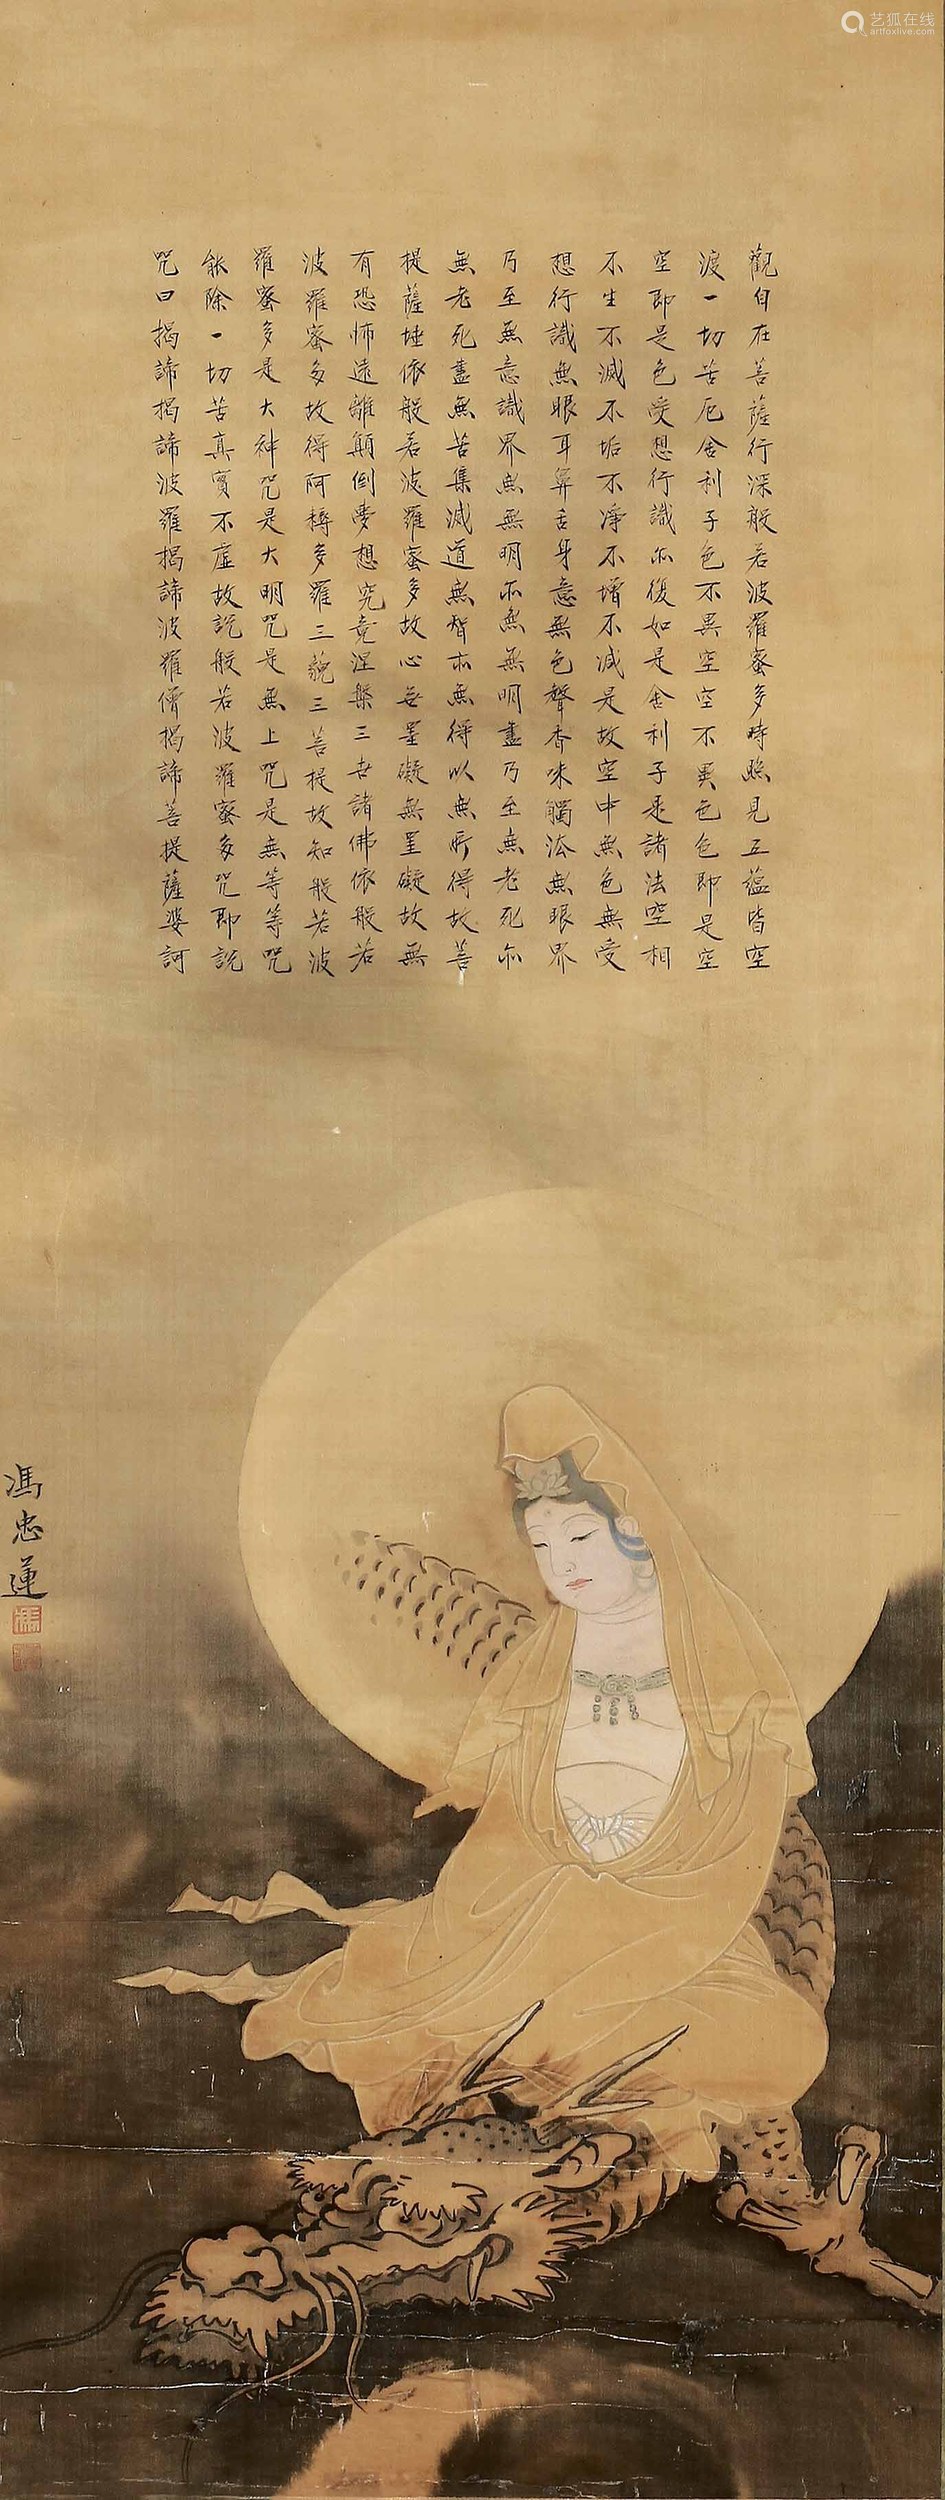 觀自在菩薩行深般若波羅蜜多時照見五蘊皆空
渡一切苦厄舍利子色不異空空不異色色即是空
空即是色受想行識亦復如是舍利子是諸法空相
不生不滅不垢不淨不增不減是故空中無色無受
想行識無眼耳鼻舌身意無色聲香味觸法無眼界
乃至無意識界無無明亦無無明盡乃至無老死亦
無老死盡無苦集滅道無智亦無得以無所得故菩
提薩埵依般若波羅蜜多故心無罣礙無罣礙故無
有恐怖遠離顛倒夢想究竟涅槃三世諸佛依般若
波羅蜜多故得阿耨多羅三藐三菩提故知般若波
羅蜜多是大神咒是大明咒是無上咒是無等等咒
能除一切苦真實不虛故說般若波羅蜜多咒即說
咒曰揭諦揭諦波羅揭諦波羅僧揭諦菩提薩婆訶
馮忠蓮
馮
艺狐在线
artfoxlive.com